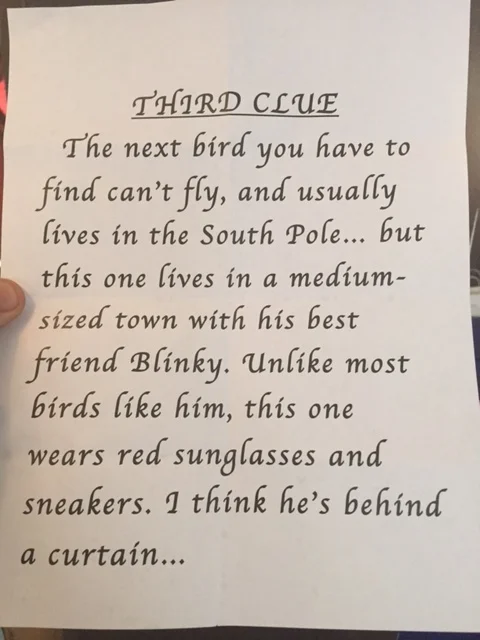 THIRD CLUE
The next bird you have to
find can't fly, and usually
lives in the South Pole... but
this one lives in a medium-
sized town with his best
friend Blinky. Unlike most
birds like him, this one
wears red sunglasses and
sneakers. I think he's behind
a curtain...